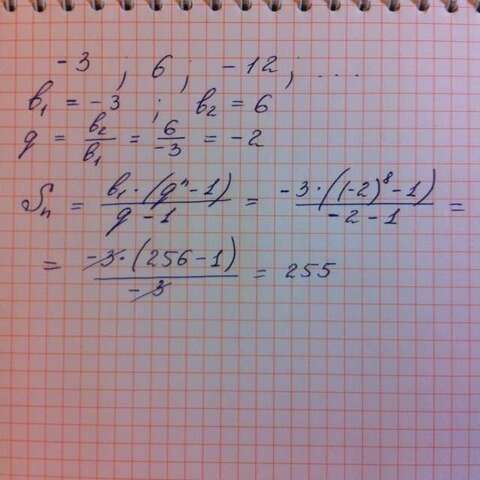 -3 ; 6 ; -12 ; ...
b₁ = -3 ; b₂ = 6
q = b₂/b₁ = 6/-3 = -2
Sₙ = b₁·(qⁿ-1)/q-1 = -3·((-2)⁸-1)/-2-1 =
= -3·(256-1)/-3 = 255